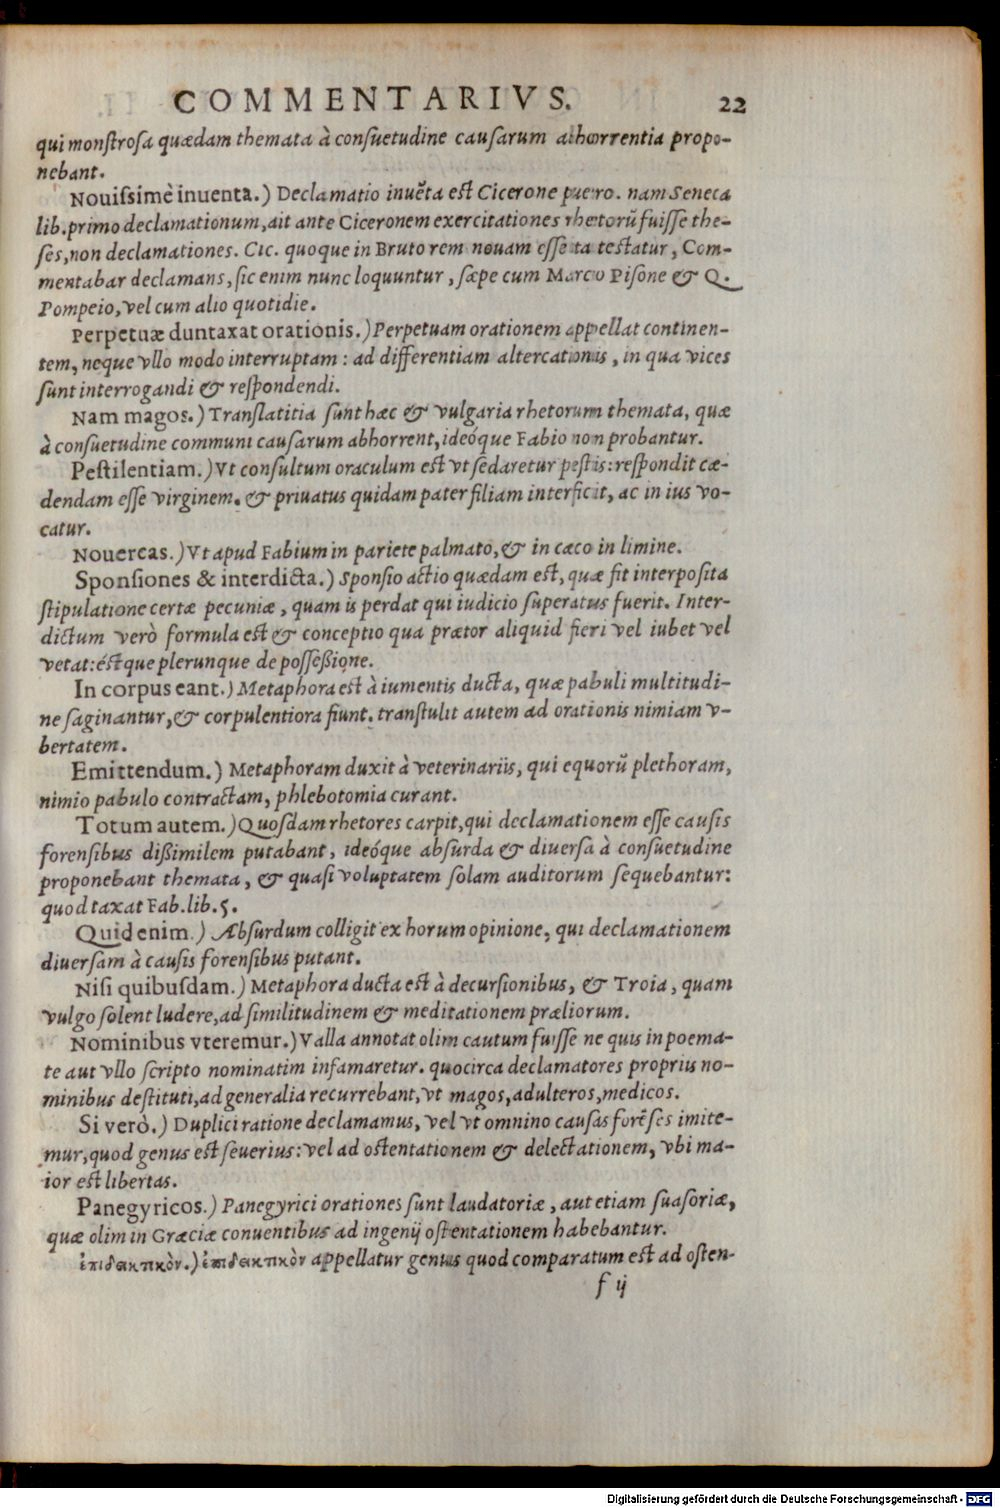 COMMENTARIVS. 22
qui monſtroſa quædam themata à conſuetudine cauſarum abhorrentia propo-
nebant.
Nouiſsimè inuenta.) Declamatio inuẽta eſt Cicerone puero. nam Seneca
lib.primo declamationum,ait ante Ciceronem exercitationes rhetorũ fuiſſe the-
ſes,non declamationes. Cic. quoque in Bruto rem nouam eſſe ita teſtatur, Com-
mentabar declamans, ſic enim nunc loquuntur, ſæpe cum Marco Piſone & Q.
Pompeio, vel cum alio quotidie.
Perpetuæ duntaxat orationis.) Perpetuam orationem appellat continen-
tem, neque vllo modo interruptam: ad differentiam altercationis, in qua vices
ſunt interrogandi & reſpondendi.
Nam magos.) Tranſlatitia ſunt hæc & vulgaria rhetorum themata, quæ
à conſuetudine communi cauſarum abhorrent,ideóque Fabio non probantur.
Peſtilentiam.) Vt conſultum oraculum eſt vt ſedaretur peſtis: reſpondit cæ-
dendam eſſe virginem. & priuatus quidam pater filiam interficit, ac in ius vo-
catur.
Nouercas.) Vt apud Fabium in pariete palmato,& in cæco in limine.
Sponſiones & interdicta.) Sponſio actio quædam eſt, quæ fit interpoſita
ſtipulatione certæ pecuniæ, quam is perdat qui iudicio ſuperatus fuerit. Inter-
dictum verò formula eſt & conceptio qua prætor aliquid fieri vel iubet vel
vetat: éſtque plerunque de poſſeßione.
In corpus eant.) Metaphora eſt à iumentis ducta, quæ pabuli multitudi-
ne ſaginantur,& corpulentiora fiunt. tranſtulit autem ad orationis nimiam v-
bertatem.
Emittendum.) Metaphoram duxit à veterinariis, qui equorũ plethoram,
nimio pabulo contractam, phlebotomia curant.
Totum autem.) Quoſdam rhetores carpit,qui declamationem eſſe cauſis
forenſibus dißimilem putabant, ideóque abſurda & diuerſa à conſuetudine
proponebant themata, & quaſi voluptatem ſolam auditorum ſequebantur:
quod taxat Fab.lib.5.
Quid enim.) Abſurdum colligit ex horum opinione, qui declamationem
diuerſam à cauſis forenſibus putant.
Niſi quibuſdam.) Metaphora ducta eſt à decurſionibus, & Troia, quam
vulgo ſolent ludere,ad ſimilitudinem & meditationem præliorum.
Nominibus vteremur.) Valla annotat olim cautum fuiſſe ne quis in poema-
te aut vllo ſcripto nominatim infamaretur. quocirca declamatores propriis no-
minibus deſtituti,ad generalia recurrebant,vt magos,adulteros,medicos.
Si verò.) Duplici ratione declamamus, vel vt omnino cauſas forẽſes imite-
mur,quod genus eſt ſeuerius: vel ad oſtentationem & delectationem, vbi ma-
ior eſt libertas.
Panegyricos.) Panegyrici orationes ſunt laudatoriæ, aut etiam ſuaſoriæ,
quæ olim in Græciæ conuentibus ad ingenij oſtentationem habebantur.
ἐπιδεικτικὸν.) ἐπιδεικτικὸν appellatur genus quod comparatum eſt ad oſten-
f ij
Digitalisierung gefördert durch die Deutsche Forschungsgemeinschaft - DFG